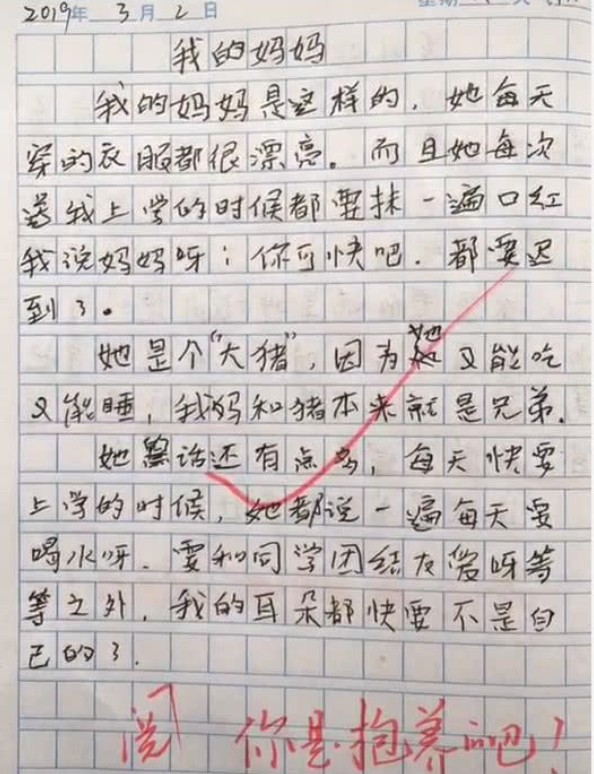 2019年 3月 2日
我的妈妈
我的妈妈是这样的，她每天
穿的衣服都很漂亮。而且她每次
送我上学的时候都要抹一遍口红
我说妈妈呀；你可快吧．都要迟
到了。
她是个“大猪”，因为她又能吃
又能睡，我妈和猪本来就是兄弟．
她话还有点多，每天快要
上学的时候，她都说一遍每天要
喝水呀．要和同学团结友爱呀等
等之外，我的耳朵都快要不是自
己的了．
阅 你是抱养的吧！